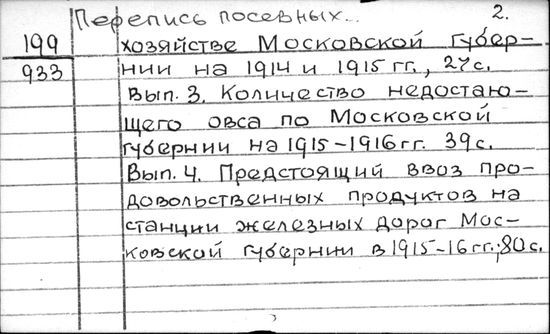 Перепись посевных... 2.
199 хозяйстве Московской губер-
933 нии на 1914 и 1915 гг., 27с.
Вып. 3. Количество недостаю-
щего овса по Московской
губернии на 1915-1916 гг. 39с.
Вып. 4. Предстоящий ввоз про-
довольственных продуктов на
станции железных дорог Мос-
ковской губернии в 1915-16 гг.; 80с.